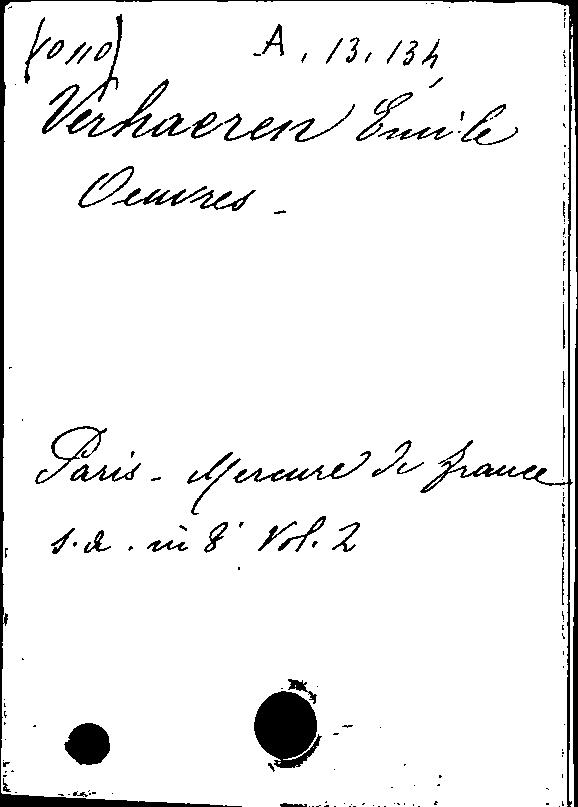 (10110) A. 13. 134
Verhaeren Emile
Oeuvres -
Paris - Mercure de france
s.a. in 8° Vol. 2